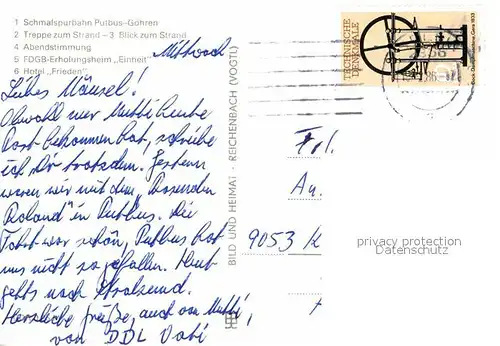 1 Schmalspurbahn Putbus-Göhren
2 Treppe zum Strand – 3 Blick zum Strand
4 Abendstimmung
5 FDGB-Erholungsheim „Einheit"
6 Hotel „Frieden"
Mittwoch
Liebes Mäusel!
Obwohl nur Mutti heute
Post bekommen hat, schreibe
ich Dir trotzdem. Gestern
waren wir mit dem „Rasenden
Roland" in Putbus. Die
Fahrt war schön, Putbus hat
uns nicht so gefallen. Heut
gehts nach Stralsund.
Herzliche Grüße, auch von Mutti,
von DDL Vati
BILD UND HEIMAT · REICHENBACH (VOGTL)
TECHNISCHE
DENKMALE
Frl.
9053 K
privacy protection
Datenschutz